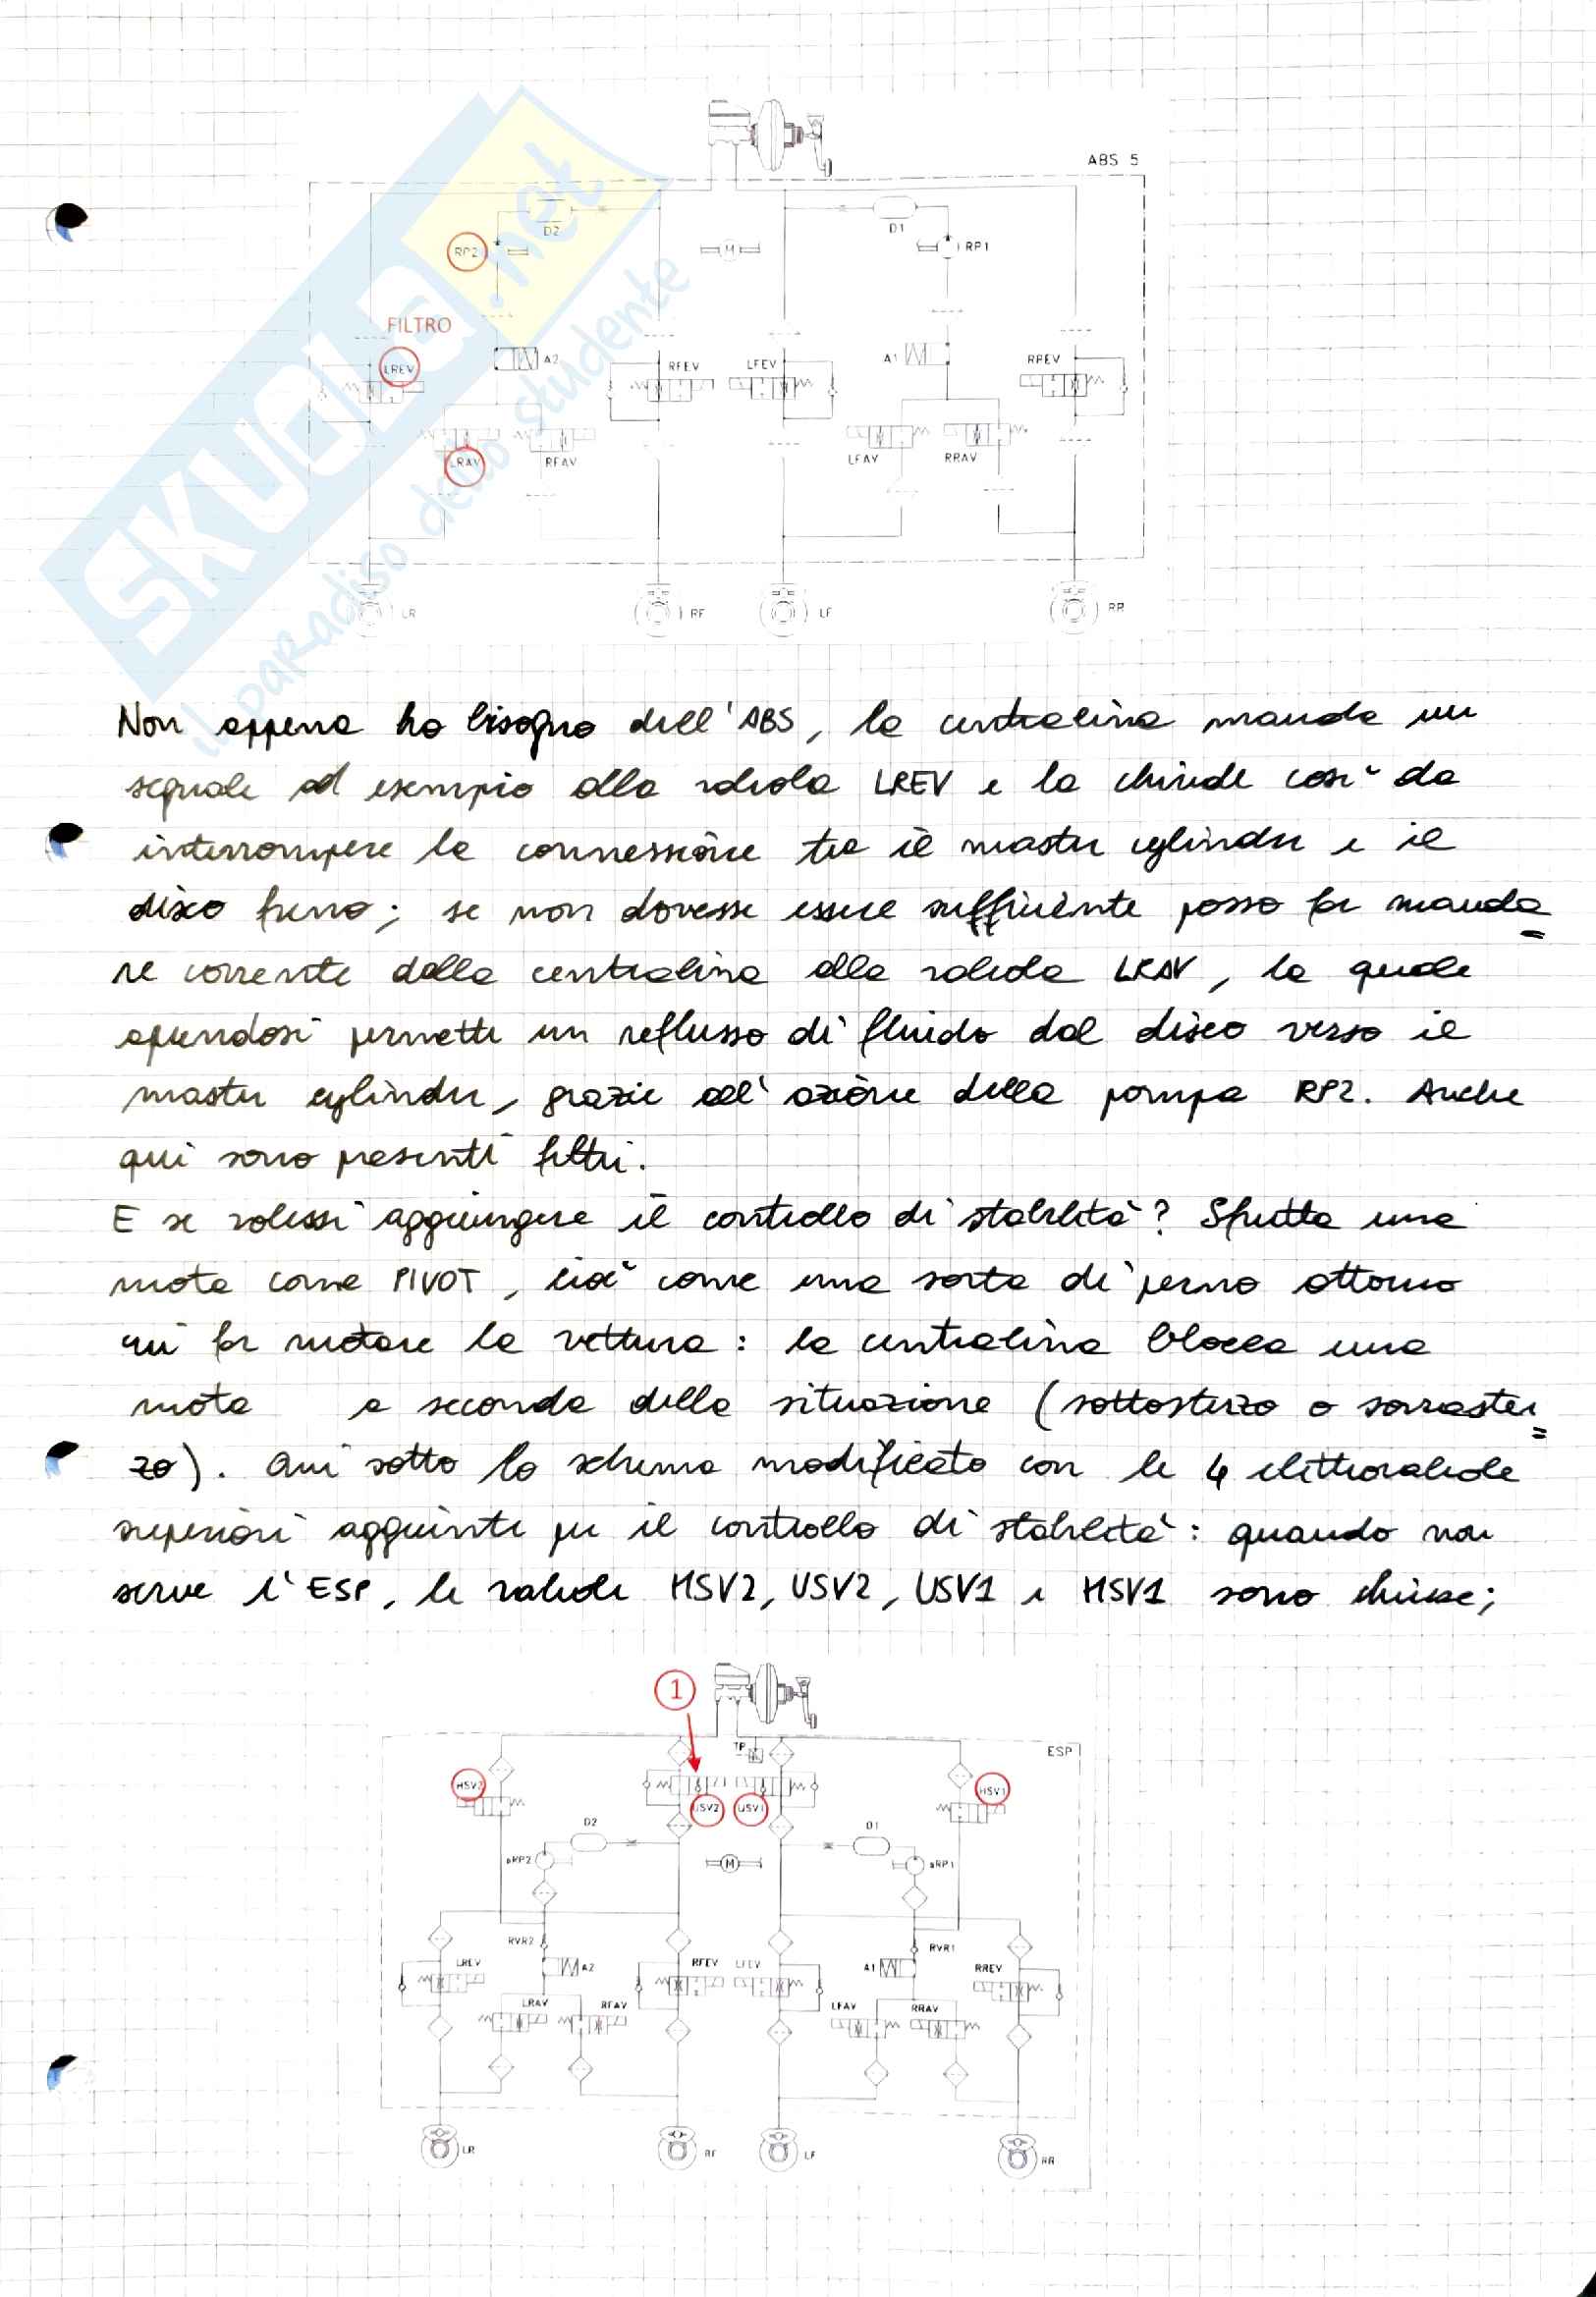 ABS 5
D2
D1
RP2
M
RP1
FILTRO
LREV
A2
RFEV
LFEV
A1
RREV
LRAV
RFAV
LFAV
RRAV
LR
RF
LF
RR
SKUOLA.net
il paradiso dello studente
Non appena ho bisogno dell'ABS, la centralina manda un
segnale ad esempio alla valvola LREV e la chiude così da
interrompere la connessione tra il master cylinder e il
disco freno; se non dovesse essere sufficiente posso far manda=
re corrente dalla centralina alla valvola LRAV, la quale
aprendosi permette un reflusso di fluido dal disco verso il
master cylinder, grazie all'azione della pompa RP2. Anche
qui sono presenti filtri.
E se volessi aggiungere il controllo di stabilità? Sfrutta una
ruota come PIVOT, cioè come una sorta di perno attorno
cui far ruotare la vettura: la centralina blocca una
ruota a seconda della situazione (sottosterzo o sovraster=
zo). Qui sotto lo schema modificato con le 4 elettrovalvole
superiori aggiunte per il controllo di stabilità: quando non
serve l'ESP, le valvole HSV2, USV2, USV1 e HSV1 sono chiuse;
1
TP
ESP
HSV2
USV2
USV1
HSV1
D2
D1
sRP2
M
sRP1
RVR2
RVR1
LREV
A2
RFEV
LFEV
A1
RREV
LRAV
RFAV
LFAV
RRAV
LR
RF
LF
RR